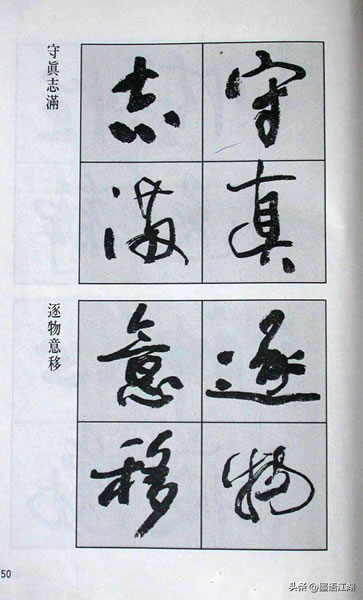 守真
志滿
守眞志滿
逐物
意移
逐物意移
50
头条@墨语江湖